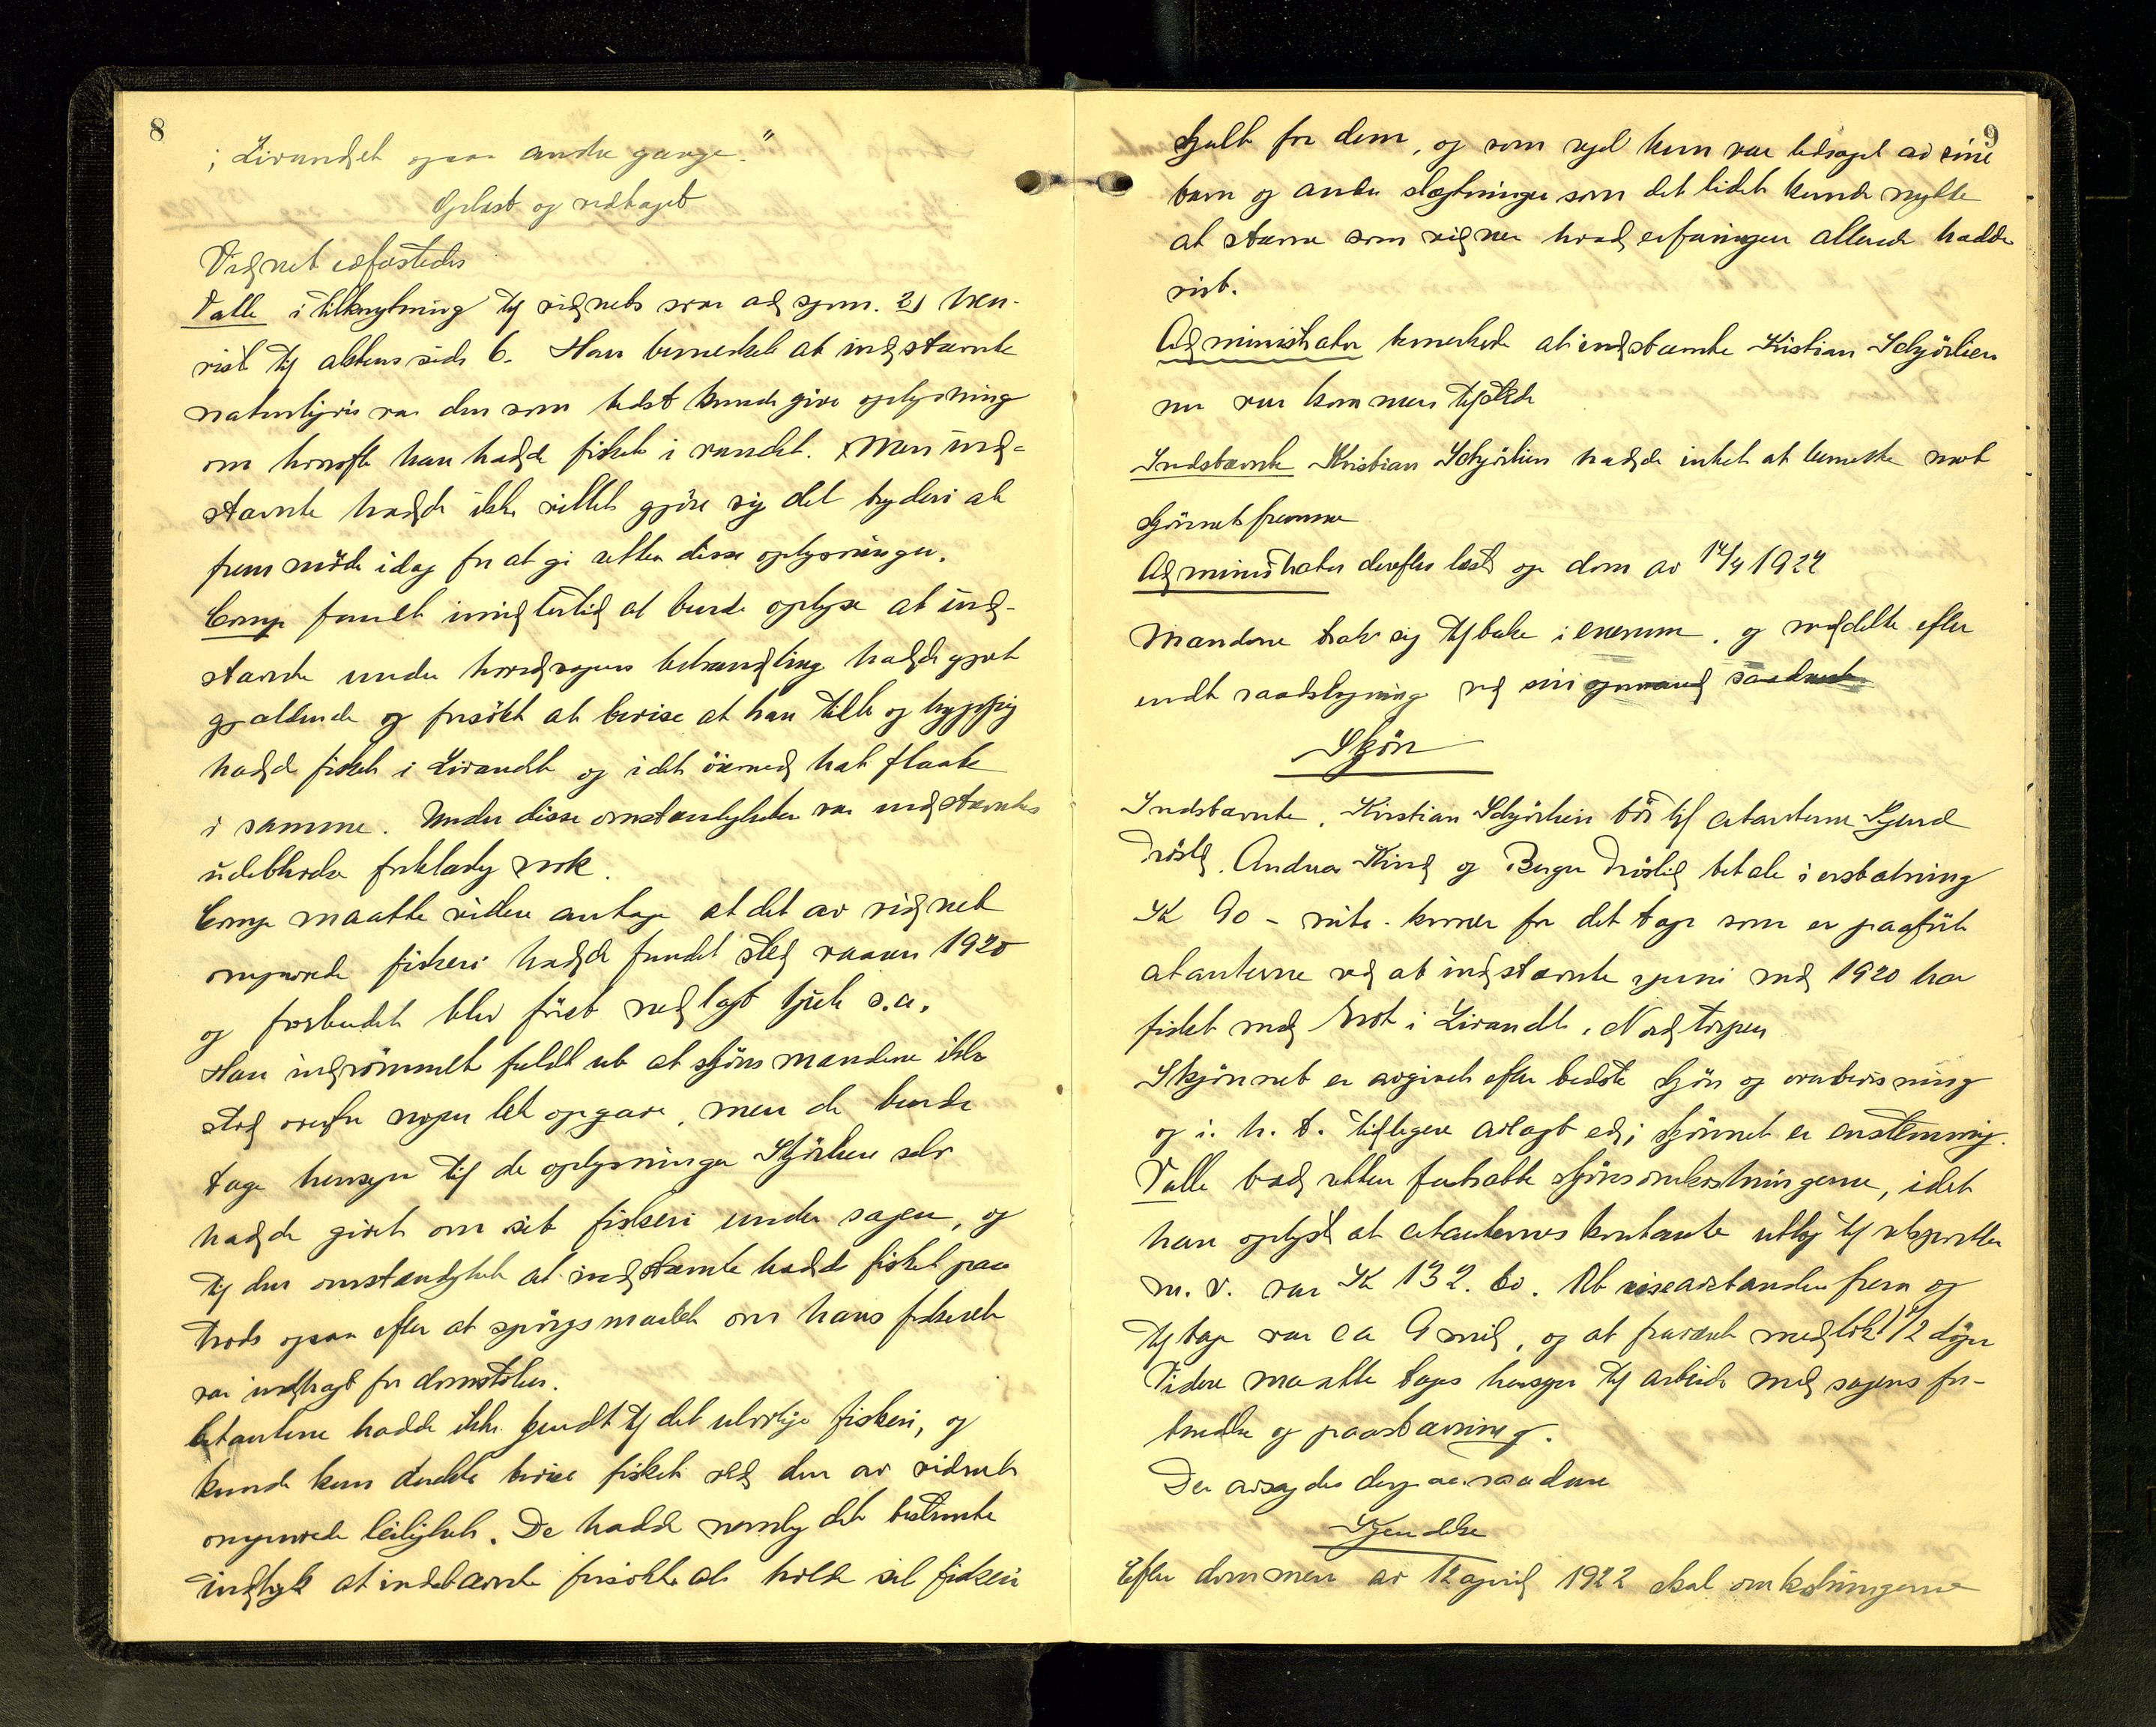 8
i Livandet ogsaa andre gange."
Oplæst og vedtaget
Vidnet edfæstedes
Valle i tilknytning til vidnets svar ad spm. 2) hen-
viste til aktens side 6. Han bemerket at indstævnte
naturligvis var den som bedst kunde give oplysning
om hvorofte han hadde fisket i vandet. Men ind-
stævnte hadde ikke villet gjöre sig det byderi at
fremmöte idag for at gi retten disse oplysninger.
Comp fandt imidlertid at burde oplyse at ind-
stævnte under hovedsagens behandling hadde gjort
gjældende og forsökt at bevise at han titt og hyppig
hadde fisket i Livandet og i det öiemed hat flaate
i samme. Under disse omstændigheter var indstævntes
udeblivelse forklarlig nok.
Comp maatte videre antage at det av vidnet
omprovede fiskeri hadde fundet sted vaaren 1920
og forbudet blev först nedlagt juli s.a.
Han indrömmet fuldt ut at skjönsmændene ikke
stod overfor nogen let opgave, men de burde
tage hensyn til de oplysninger Skjörlien selv
hadde givet om sit fiskeri under sagen, og
til den omstændighet at indstævnte hadde fisket paa
trods ogsaa efter at spörgsmaalet om hans fiskeret
var indbragt for domstolen.
Citanterne hadde ikke kjendt til det ulovlige fiskeri, og
kunde kun direkte bevise fisket ved den av vidnet
omprovede leilighet. De hadde nemlig det bestemte
indtryk at indstævnte forsökte at holde sit fiskeri
9
skjult for dem, og som regel kun var ledsaget av sine
barn og andre slegtninger som det lidet kunde nytte
at stævne som vidner hvad erfaringen allerede hadde
vist.
Administrator bemerkede at indstævnte Kristian Skjörlien
nu var kommen tilstede
Indstævnte Kristian Skjörlien hadde intet at bemerke mot
skjönnets fremme
Administrator derefter læste op dom av 12/4 1922
Mændene trak sig tilbake i enerum, og meddelte efter
endt raadslagning ved sin opmand saadant
Skjön
Indstævnte, Kristian Skjörlien bör til citanterne Gjerud
Dröslid, Andrea Kind og Berger Dröslid betale i erstatning
Kr 90 - nitti - kroner for det tap som er paaført
citanterne ved at indstævnte i juni md 1920 har
fisket med not i Livandet i Nordtorpen
Skjönnet er avgivet efter bedste skjön og overbevisning
og i. h. t. tidligere avlagt ed; skjönnet er enstemmig.
Valle bad retten fastsætte skjönsomkostningerne, idet
han oplyste at citanternes kontante utlæg til retsgebyr
m. v. var Kr 132.60. At reiseavstanden frem og
tilbage var ca 9 mil, og at fraværet medtok 1 1/2 døgn
Videre maatte tages hensyn til arbeide med sagens for-
beredelse og paastævning.
Der avsagdes derpaa saadan
Kjendelse
Efter dommen av 12 april 1922 skal omkostningerne